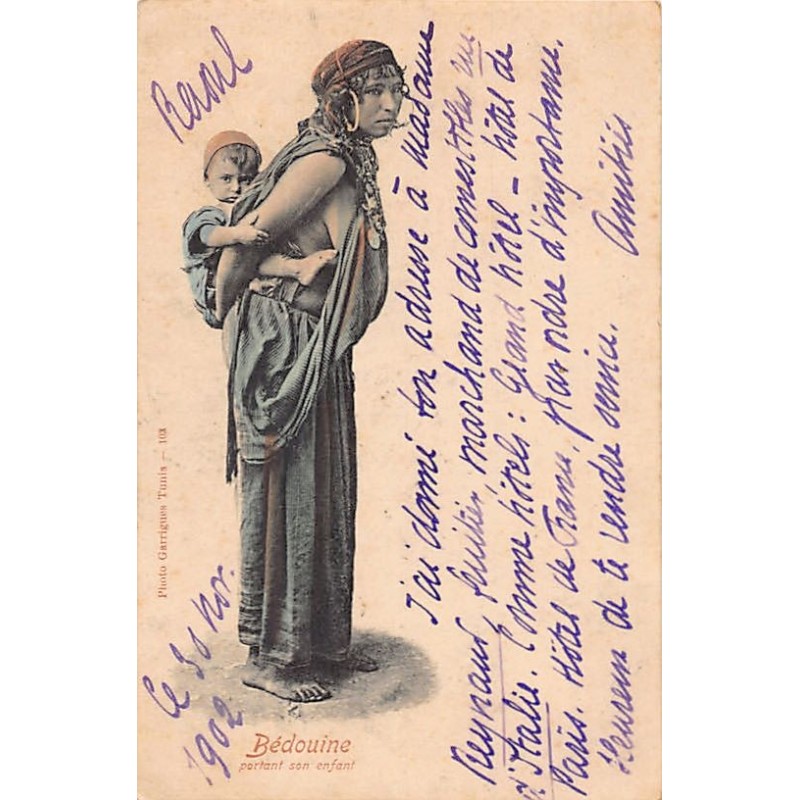 J'ai donné ton adresse à Madame
Reynaud, fruitier, marchand de comestibles rue
d'Italie. Comme hôtels : Grand hôtel - hôtel de
Paris. Hôtel de France, par ordre d'importance.
Heureux de te rendre service. Amitiés
Raoul
Le 30 Nov.
1902
Photo Garrigues Tunis — 103
Bédouine
portant son enfant